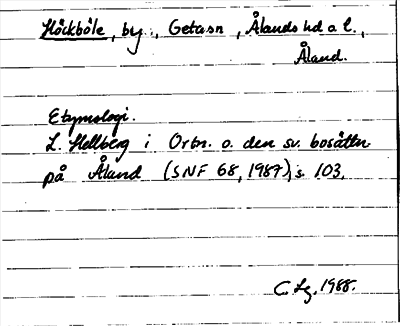 Höckböle, by, Geta sn, Ålands hd o. l.,
Åland.
Etymologi.
L. Hellberg i Ortn. o. den sv. bosättn
på Åland (SNF 68, 1987), s. 103.
C. Lg. 1988.